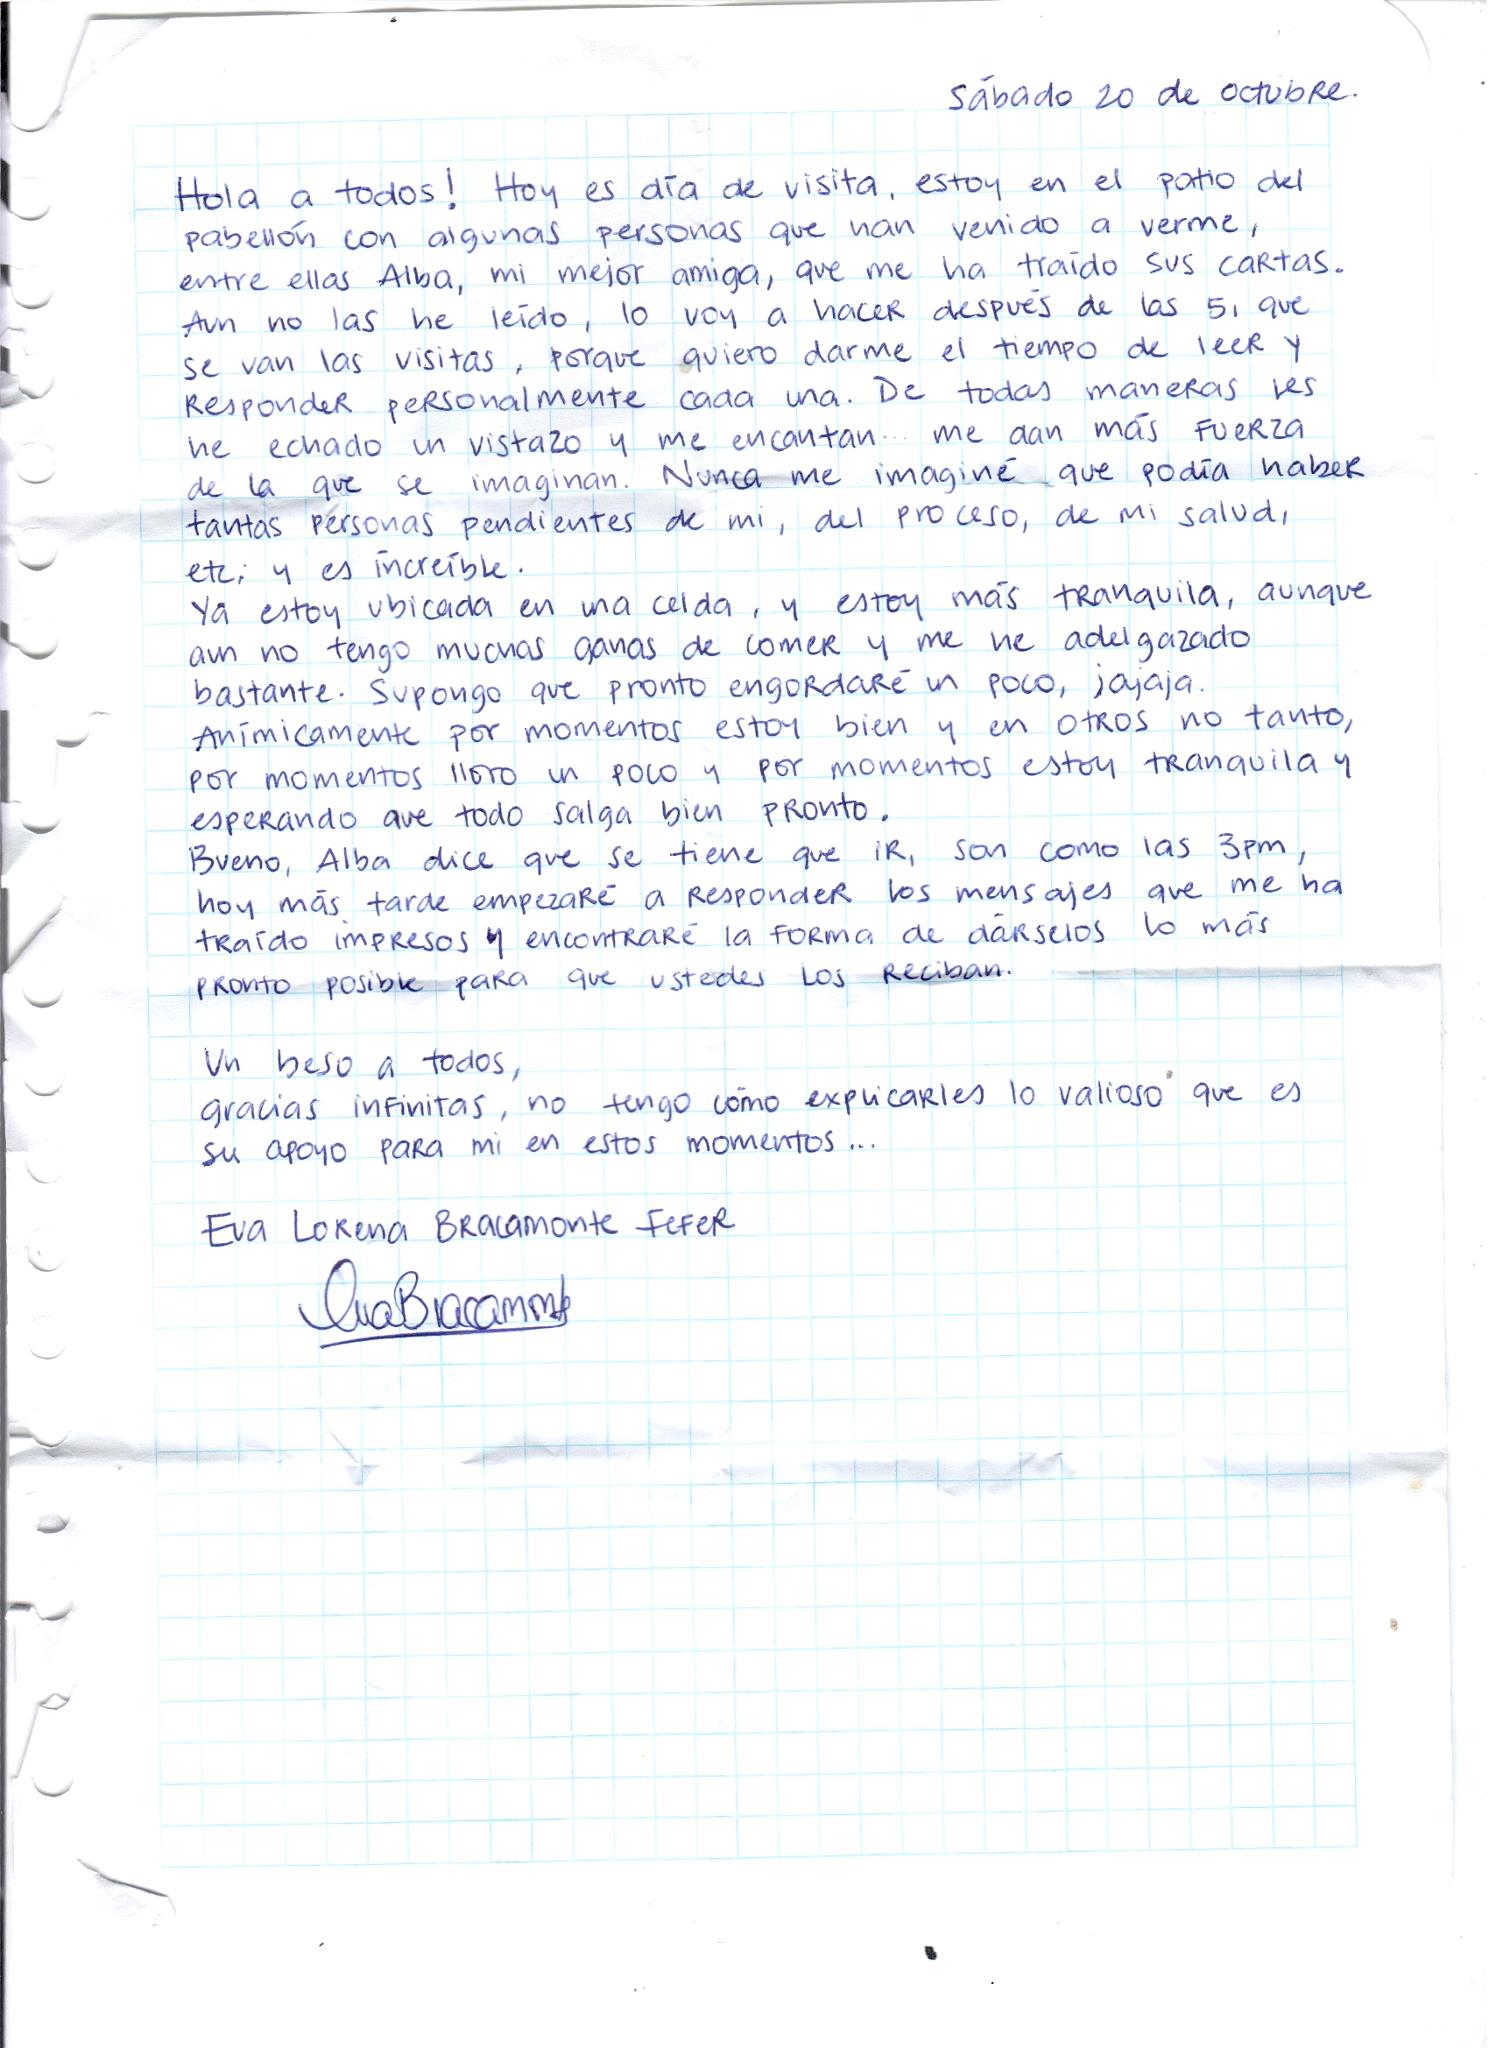 Sábado 20 de octubre.
Hola a todos! Hoy es día de visita, estoy en el patio del
pabellón con algunas personas que han venido a verme,
entre ellas Alba, mi mejor amiga, que me ha traído sus cartas.
Aun no las he leído, lo voy a hacer después de las 5, que
se van las visitas, porque quiero darme el tiempo de leer y
responder personalmente cada una. De todas maneras les
he echado un vistazo y me encantan... me dan más fuerza
de la que se imaginan. Nunca me imaginé que podía haber
tantas personas pendientes de mi, del proceso, de mi salud,
etc; y es increíble.
Ya estoy ubicada en una celda, y estoy más tranquila, aunque
aun no tengo muchas ganas de comer y me he adelgazado
bastante. Supongo que pronto engordaré un poco, jajaja.
Anímicamente por momentos estoy bien y en otros no tanto,
por momentos lloro un poco y por momentos estoy tranquila y
esperando que todo salga bien pronto.
Bueno, Alba dice que se tiene que ir, son como las 3pm,
hoy más tarde empezaré a responder los mensajes que me ha
traído impresos y encontraré la forma de dárselos lo más
pronto posible para que ustedes los reciban.
Un beso a todos,
gracias infinitas, no tengo cómo explicarles lo valioso que es
su apoyo para mi en estos momentos...
Eva Lorena Bracamonte Fefer
Eva Bracamonte